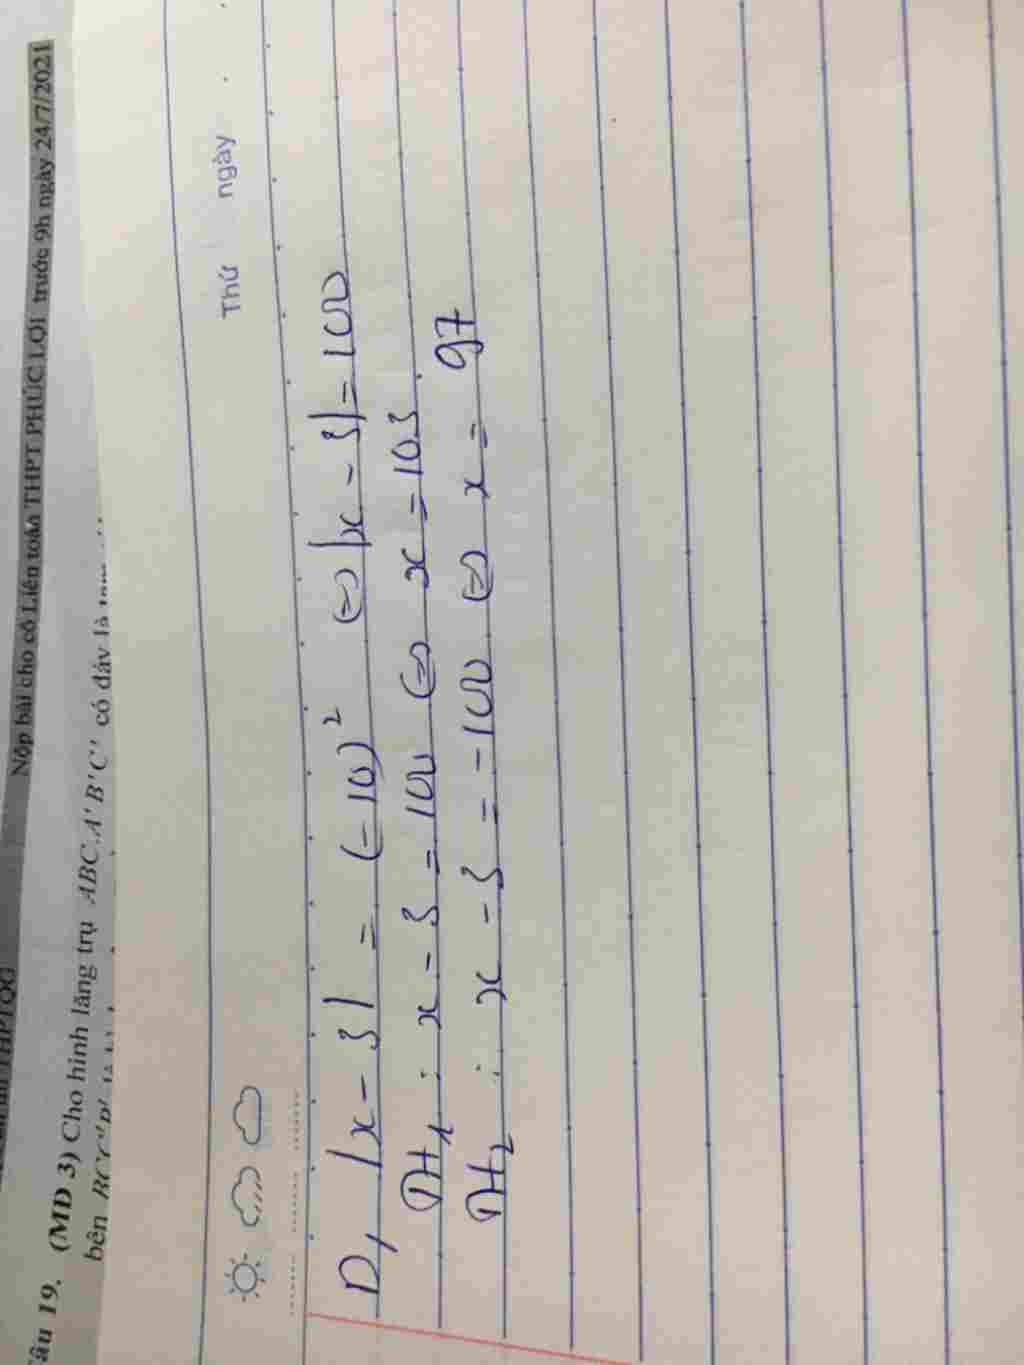 THPTQG
Nộp bài cho cô Liên toán THPT PHÚC LỢI trước 9h ngày 24/7/2021
Câu 19. (MD 3) Cho hình lăng trụ ABC.A'B'C' có đáy là
bên
Thứ ngày
D, |x - 3| = (-10)² (=) |x - 3| = 100
TH1 : x - 3 = 100 (=) x = 103
TH2 : x - 3 = -100 (=) x = 97